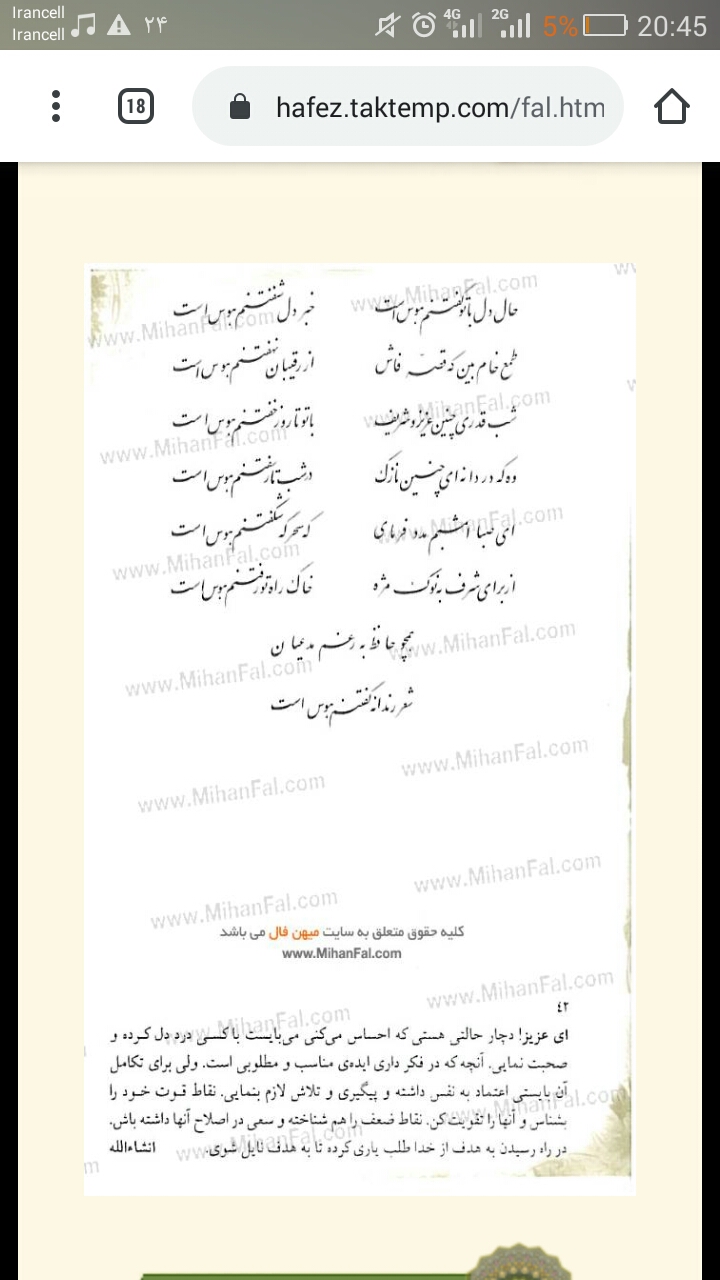 Irancell
Irancell
۲۴
4G
2G
5%
20:45
18
hafez.taktemp.com/fal.htm
حال دل با تو گفتنم هوس است
خبر دل شنفتنم هوس است
طمع خام بین که قصه فاش
از رقیبان نهفتنم هوس است
شب قدری چنین عزیز و شریف
با تو تا روز خفتنم هوس است
وه که دردانه‌ای چنین نازک
در شب تار سفتنم هوس است
ای صبا امشبم مدد فرمای
که سحرگه شکفتنم هوس است
از برای شرف به نوک مژه
خاک راه تو رفتنم هوس است
همچو حافظ به رغم مدعیان
شعر رندانه گفتنم هوس است
www.MihanFal.com
www.MihanFal.com
www.MihanFal.com
www.MihanFal.com
www.MihanFal.com
www.MihanFal.com
www.MihanFal.com
www.MihanFal.com
www.MihanFal.com
www.MihanFal.com
www.MihanFal.com
www.MihanFal.com
کلیه حقوق متعلق به سایت میهن فال می باشد
www.MihanFal.com
www.MihanFal.com
۴۲
ای عزیز! دچار حالتی هستی که احساس می‌کنی می‌بایست با کسی درد دل کرده و
صحبت نمایی. آنچه که در فکر داری ایده‌ی مناسب و مطلوبی است. ولی برای تکامل
آن بایستی اعتماد به نفس داشته و پیگیری و تلاش لازم بنمایی. نقاط قوت خود را
بشناس و آنها را تقویت کن. نقاط ضعف را هم شناخته و سعی در اصلاح آنها داشته باش.
در راه رسیدن به هدف از خدا طلب یاری کرده تا به هدف نایل شوی. انشاءالله